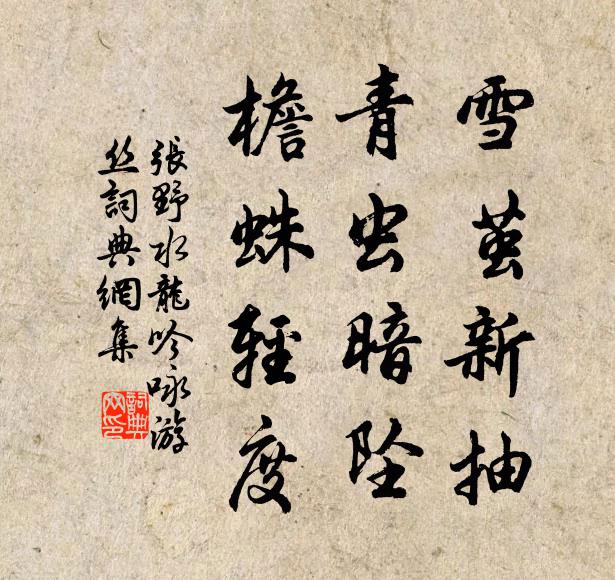 雪茧新抽
青虫暗坠
檐蛛輕度
張野水龍吟咏游
丝詞典網集
詞典
网印